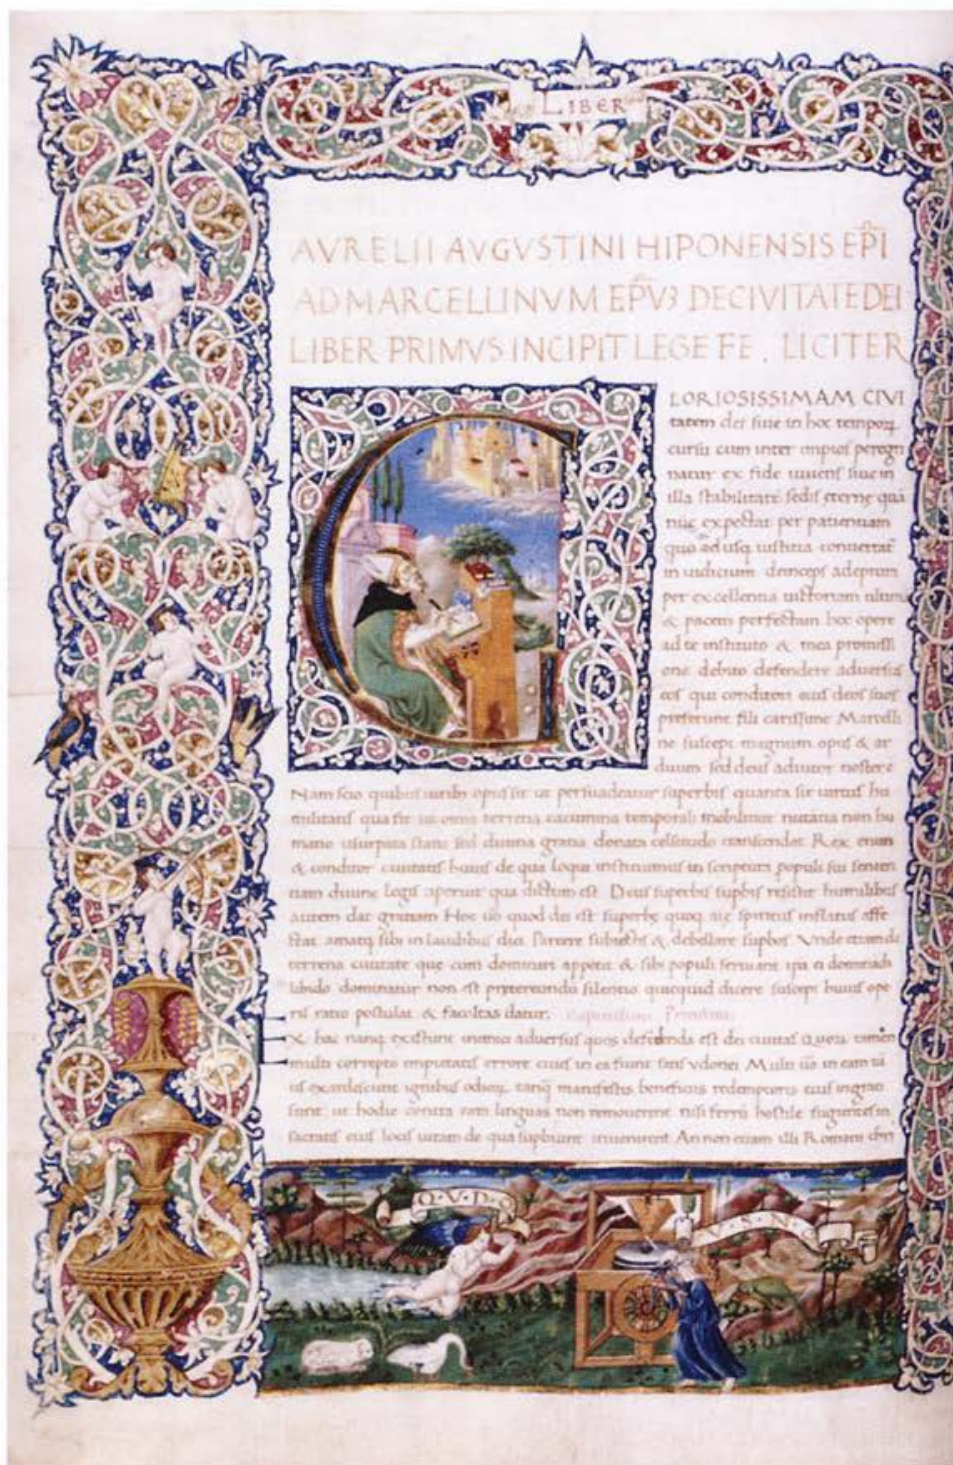 LIBER
AVRELII AVGVSTINI HIPONENSIS EP̄I
AD MARCELLINVM EP̄VƷ DE CIVITATE DEI
LIBER PRIMVS INCIPIT LEGE FE . LICITER
GLORIOSISSIMAM CIVI
tatem dei siue in hoc tempoꝝ
cursu cum inter impios peregri
natur ex fide uiuens siue in
illa stabilitate sedis eterne quā
nūc expectat per patientiam
quo adusq iustitia conuertat̄
in iudicium deinceps adeptura
per excellentia uictoriam ultima
& pacem perfectam hoc opere
ad te instituto & mea promissi
one debito defendere aduersus
eos qui conditori eius deos suos
preferunt fili carissime Marcelli
ne suscepi magnum opus & ar
duum sed deus adiutor noster ē
Nam scio quibus uirib opus sit ut persuadeatur superbis quanta sit uirtus hu
militatis qua fit ut omia terrena cacumina temporali mobilitate nutātia non hu
mano usurpata fastu sed diuina gratia donata celsitudo transcendat. Rex enim
& conditor ciuitatis huius de qua loqui instituimus in scriptura populi sui senten
tiam diuine legis aperuit qua dictum est. Deus superbis resistit humilibus
autem dat gratiam Hoc ūo quod dei est superbe quoq aīe spiritus inflatus affe
ctat amatq sibi in laudibus dici Parcere subiectis & debellare supbos. Vnde etiam de
terrena ciuitate que cum dominari appetit & si populi seruiant ipa ei dominādi
libido dominatur non est pretereundū silentio quicquid dicere suscepi huius ope
ris ratio postulat & facultas datur.
EX hac nanq existunt inimici aduersus quos defēdenda est dei ciuitas Quorū tamen
multi correcto impietatis errore ciues in ea fiunt satis ydonei Multi ūo in eam tā
tis exardescunt ignibus odioꝝ, tanq manifestis beneficiis redemptoris eius ingrati
sunt ut hodie contra eam linguas non mouerent nisi ferrū hostile fugientes in
sacratis eius locis uitam de qua supbiunt inuenirent An non etiam illi Romani chri
Q·V·D
S·N